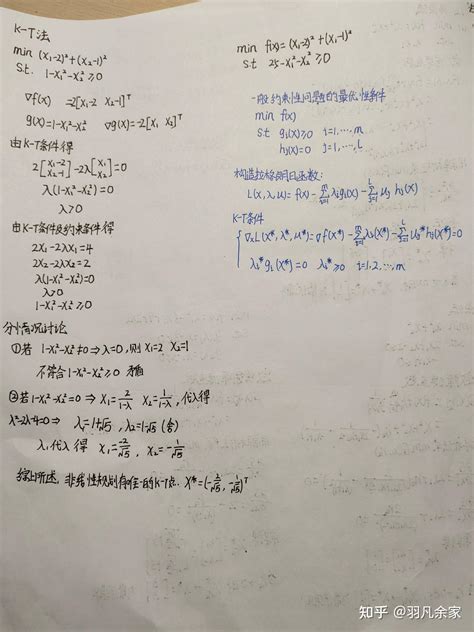 K-T法
min (x₁-2)²+(x₂-1)²
s.t. 1-x₁²-x₂²≥0
∇f(x) =2[x₁-2 x₂-1]ᵀ
g(x)=1-x₁²-x₂² ∇g(x)=-2[x₁ x₂]ᵀ
由K-T条件得
2[x₁-2 x₂-1]-2λ[x₁ x₂]=0
λ(1-x₁²-x₂²)=0
λ≥0
由K-T条件及约束条件得
2x₁-2λx₁=4
2x₂-2λx₂=2
λ(1-x₁²-x₂²)=0
λ≥0
1-x₁²-x₂²≥0
分情况讨论
①若 1-x₁²-x₂²≠0⇒λ=0,则 x₁=2 x₂=1
不符合1-x₁²-x₂²≥0 矛盾
②若1-x₁²-x₂²=0⇒ x₁=2/(1-λ) x₂=1/(1-λ),代入得
λ²-2λ-4=0⇒ λ₁=1+√5, λ₂=1-√5 (舍)
λ₁代入得 x₁=-2/√5, x₂=-1/√5
综上所述,非线性规划有唯一的K-T点. X*=(-2/√5, -1/√5)ᵀ
min f(x)=(x₁-2)²+(x₂-1)²
s.t 25-x₁²-x₂²≥0
一般约束性问题的最优性条件
min f(x)
s.t gᵢ(x)≥0 i=1,…,m
hⱼ(x)=0 j=1,…,l
构造拉格朗日函数:
L(x,λ,u)=f(x)-∑ᵢ₌₁ᵐλᵢgᵢ(x)-∑ⱼ₌₁ˡuⱼhⱼ(x)
K-T条件
{∇ₓL(x*,λ*,u*)=∇f(x*)-∑ᵢ₌₁ᵐλᵢ(x*)-∑ⱼ₌₁ˡuⱼ*hⱼ(x*)=0
λᵢ*gᵢ(x*)=0 λᵢ*≥0 i=1,2,…,m
知乎 @羽凡余家